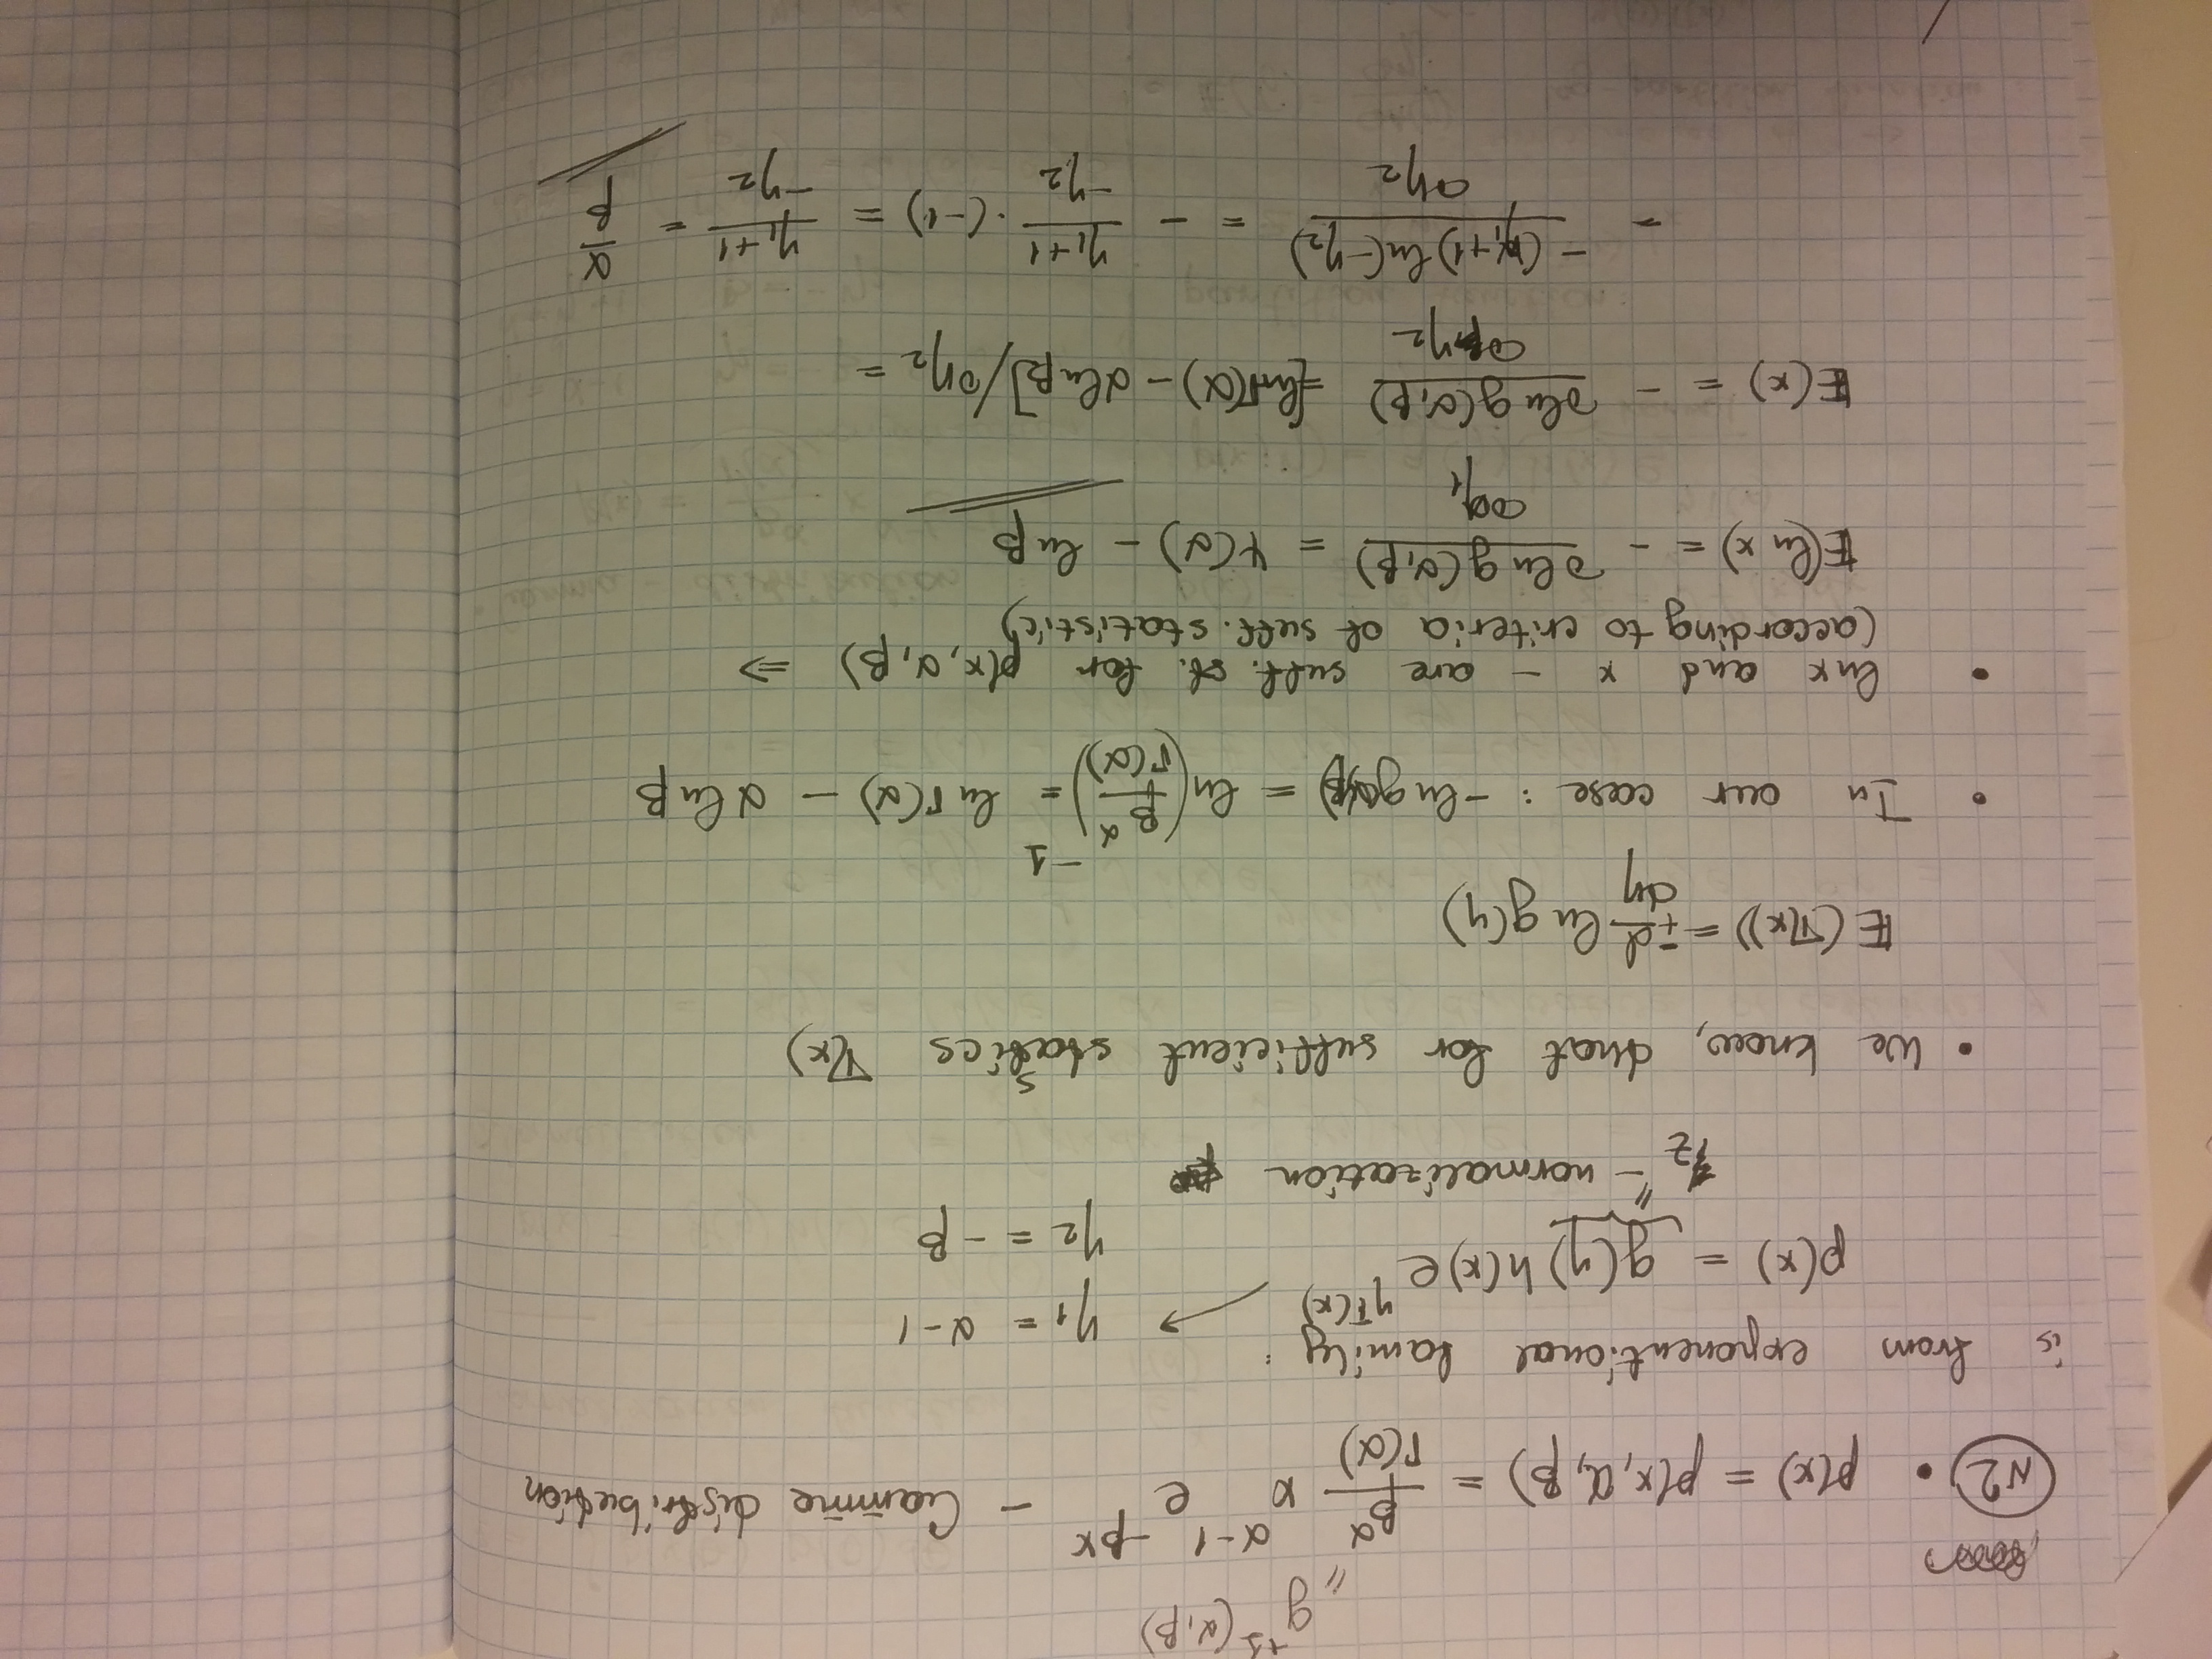 g⁺¹(α, β)
"
N2 • p(x) = p(x, α, β) = β^α / Γ(α) x^(α-1) e^(-βx) - Gamme distribution
is from exponentional family:
p(x) = g(η) h(x) e^(η'T(x)) → η₁ = α - 1
η₂ = -β
" 1/Z - normalization
• We know, that for sufficient statistics T(x)
E(T(x)) = - d/dη ln g(η)
• In our case: - ln g(α, β) = ln (β^α / Γ(α))^(-1) = ln Γ(α) - α ln β
• ln x and x - are suff. st. for p(x, α, β) ⇒
(according to criteria of suff. statistic)
E(ln x) = - ∂ ln g(α, β) / ∂η₁ = ψ(α) - ln β
E(x) = - ∂ ln g(α, β) / ∂η₂ = ∂[ln Γ(α) - α ln β] / ∂η₂ =
= - (η₁+1) ln(-η₂) / ∂η₂ = - (η₁+1) / -η₂ · (-1) = (η₁+1) / -η₂ = α / β